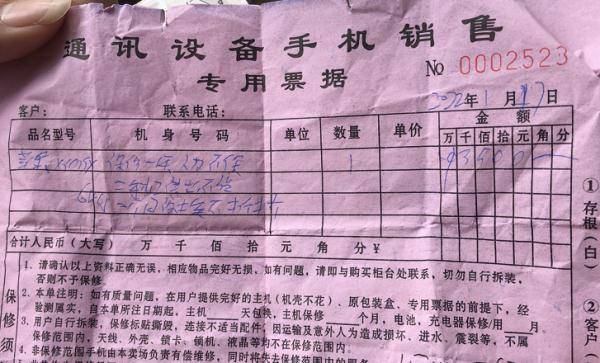 通讯设备手机销售
专用票据
№ 0002523
2022年1月17日
客户： 联系电话：
品名型号 机身号码 单位 数量 单价 金额
万 千 佰 拾 元 角 分
1
合计人民币（大写） 万 千 佰 拾 元 角 分￥
保修须
1、请确认以上资料正确无误，相应物品完好无损，如有问题，请即与购买柜台处联系，切勿自行拆装，
否则不予保修。
2、本单注明：如有质量问题，在用户提供完好的主机（机壳不花）、原包装盒、专用票据的前提下，经
验测属实，自本单所注日期起，主机 天包换，主机保修 个月，电池、充电器保修 月。
3、用户自行拆装，保修标贴撕毁，连接不适当配件，因运输及意外人为造成损坏、进水、震裂等，不属
保修范围内，天线、外壳、锁卡、镝机、液晶等均不在保修范围内。
4、非保修范围手机由本卖场负责有偿维修，同时将失去保修范围内的
①存根（白）
②客